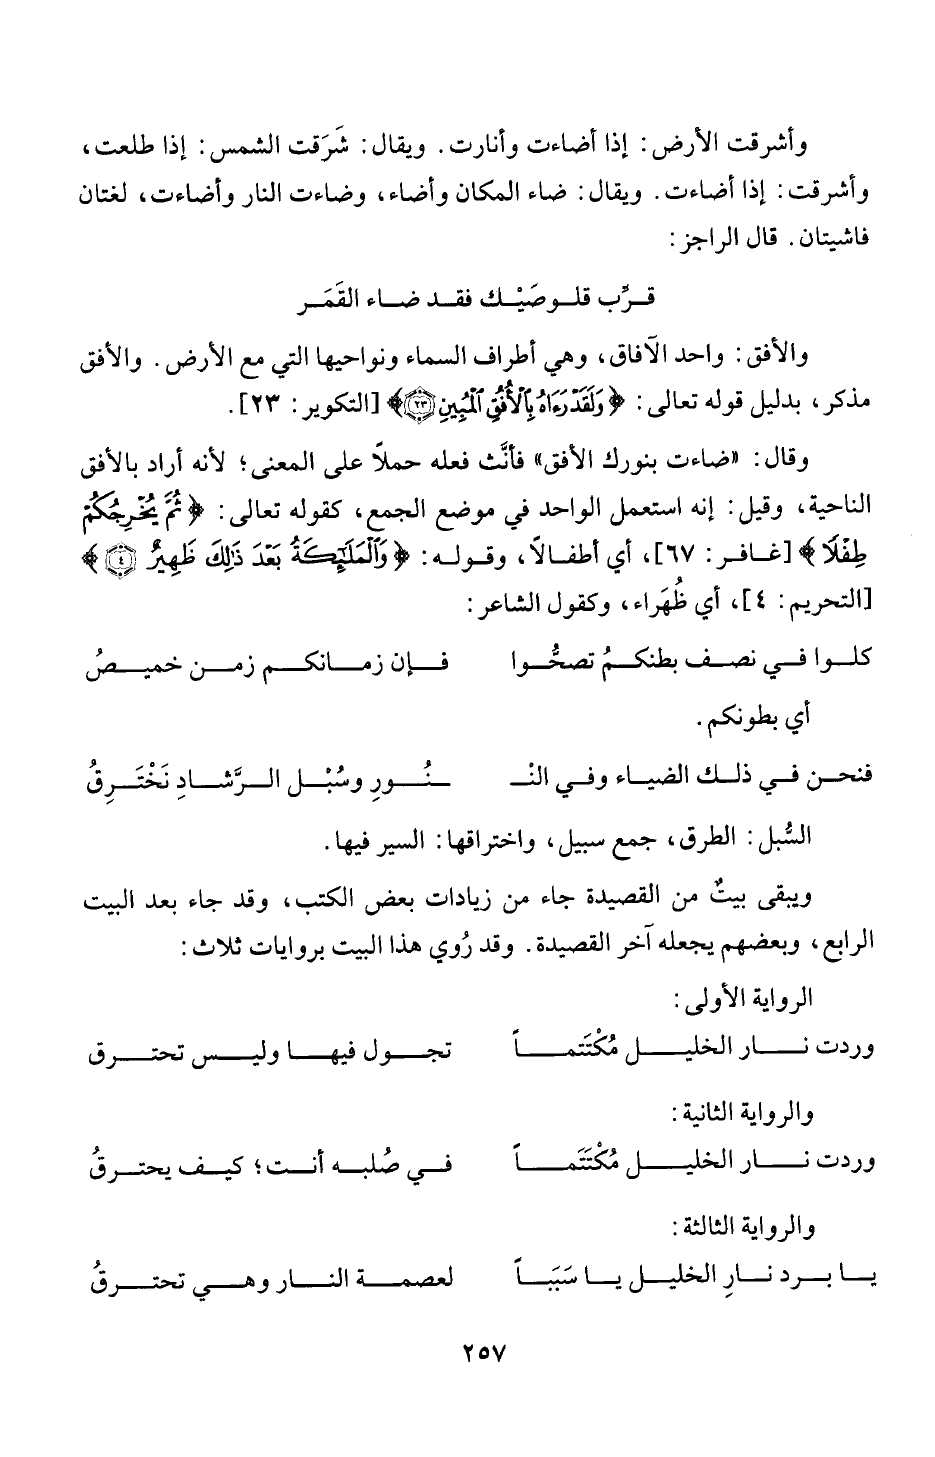 وأشرقت الأرض: إذا أضاءت وأنارت. ويقال: شَرَقت الشمس: إذا طلعت،
وأشرقت: إذا أضاءت. ويقال: ضاء المكان وأضاء، وضاءت النار وأضاءت، لغتان
فاشيتان. قال الراجز:
قرِّب قلوصَيْك فقد ضاء القَمَر
والأفق: واحد الآفاق، وهي أطراف السماء ونواحيها التي مع الأرض. والأفق
مذكر، بدليل قوله تعالى: ﴿وَلَقَدْ رَءَاهُ بِٱلْأُفُقِ ٱلْمُبِينِ ٢٣﴾ [التكوير: ٢٣].
وقال: «ضاءت بنورك الأفق» فأنَّث فعله حملاً على المعنى؛ لأنه أراد بالأفق
الناحية، وقيل: إنه استعمل الواحد في موضع الجمع، كقوله تعالى: ﴿ثُمَّ يُخْرِجُكُمْ
طِفْلًا﴾ [غافر: ٦٧]، أي أطفالاً، وقوله: ﴿وَٱلْمَلَٰٓئِكَةُ بَعْدَ ذَٰلِكَ ظَهِيرٌ ٤﴾
[التحريم: ٤]، أي ظُهَراء، وكقول الشاعر:
كلوا في نصف بطنكمُ تصحُّوا فإن زمانكم زمن خميصُ
أي بطونكم.
فنحن في ذلك الضياء وفي النـ ـنُورِ وسُبْل الرَّشادِ نَخْتَرِقُ
السُّبل: الطرق، جمع سبيل، واختراقها: السير فيها.
ويبقى بيتٌ من القصيدة جاء من زيادات بعض الكتب، وقد جاء بعد البيت
الرابع، وبعضهم يجعله آخر القصيدة. وقد رُوي هذا البيت بروايات ثلاث:
الرواية الأولى:
وردت نار الخليل مُكْتَتَماً تجول فيها وليس تحترق
والرواية الثانية:
وردت نار الخليل مُكْتَتَماً في صُلبه أنت؛ كيف يحترقُ
والرواية الثالثة:
يا برد نارِ الخليل يا سَبَباً لعصمة النار وهي تحترقُ
٢٥٧